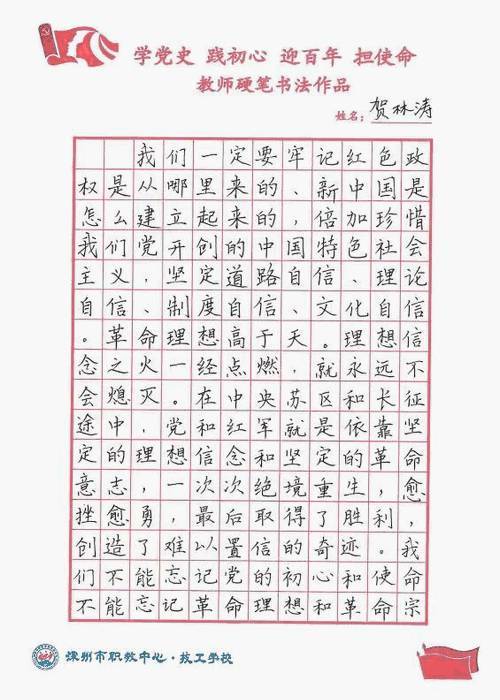 学党史 践初心 迎百年 担使命
教师硬笔书法作品
姓名：贺林涛
我们一定要牢记红色政
权是从哪里来的、新中国是
怎么建立起来的，倍加珍惜
我们党开创的中国特色社会
主义，坚定道路自信、理论
自信、制度自信、文化自信
。革命理想高于天。理想信
念之火一经点燃，就永远不
会熄灭。在中央苏区和长征
途中，党和红军就是依靠坚
定的理想信念和坚定的革命
意志，一次次绝境重生，愈
挫愈勇，最后取得了胜利，
创造了难以置信的奇迹。我
们不能忘记党的初心和使命
不能忘记革命理想和革命宗
滦州市职教中心·技工学校